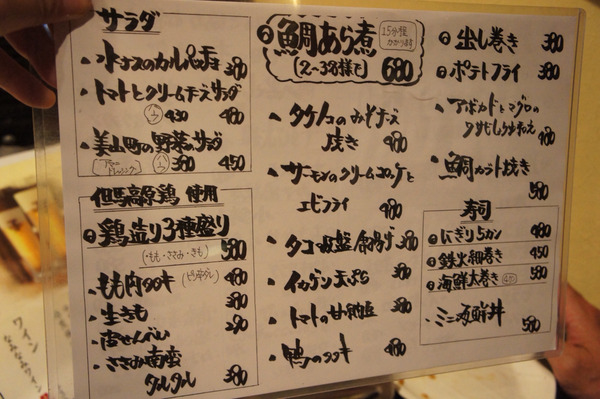 サラダ
・水ナスのカルパッチョ 380
・トマトとクリームチーズサラダ
ハーフ 430 480
・美山町の野菜のサラダ
ハーフ 380 450
但馬高原鶏 使用
鶏造り3種盛り
(・もも・ささみ・きも) 580
・もも肉タタキ 480
・生きも 380
・ささみ南蛮
タルタル 380
鯛あら煮
15分程
かかります
(2〜3名様で) 680
・タケノコのみそチーズ
焼き 480
・サーモンのクリームコロッケと
エビフライ 480
・イカゲソ天ぷら 380
・トマトの甘納豆 380
・鴨のタタキ 480
出し巻き 380
ポテトフライ 380
・アボカドとマグロの
480
・鯛カブト焼き
580
寿司
にぎり5カン 480
鉄火細巻き 450
海鮮太巻き 580
・ミニ海鮮丼
580
ワイン